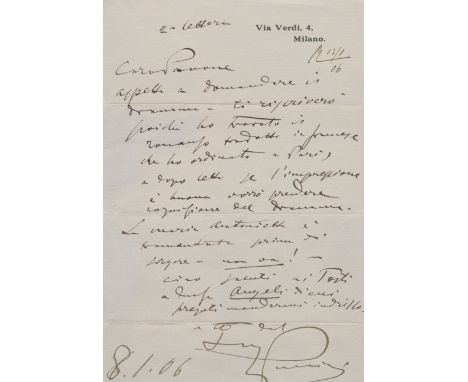 2a lettera
Via Verdi, 4.
Milano.
R 12/1
06
Caro Pavone
aspetta a domandare il
dramma - ti riscriverò
poichè ho trovato il
romanzo tradotto in francese
che ho ordinato a Parigi
e dopo letto se l'impressione
è buona vorrò prendere
cognizione del dramma.
La Maria Antonietta è
tramontata prima di
sorgere - non va! -
ciao saluti ai Tosti
a duca Angeli di cui
pregoti mandarmi indirizzo.
a te dal
Puccini
8.1.06